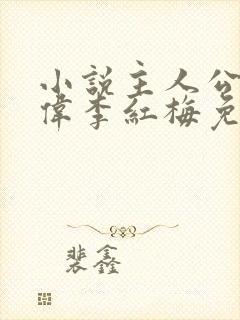 小说主人公
偉李紅梅免
裴鑫